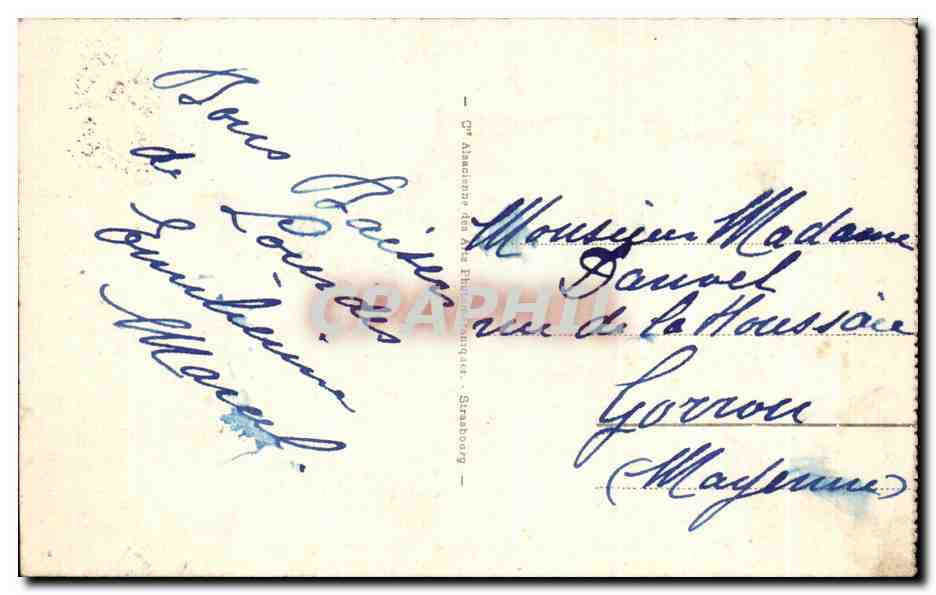 Bons Baisers
de Lourdes
Marcel.
- Cie Alsacienne des Arts Photomécaniques. - Strasbourg -
Monsieur Madame
Dauvel
rue de la Houssaie
Gorron
(Mayenne)
CPAPHIL